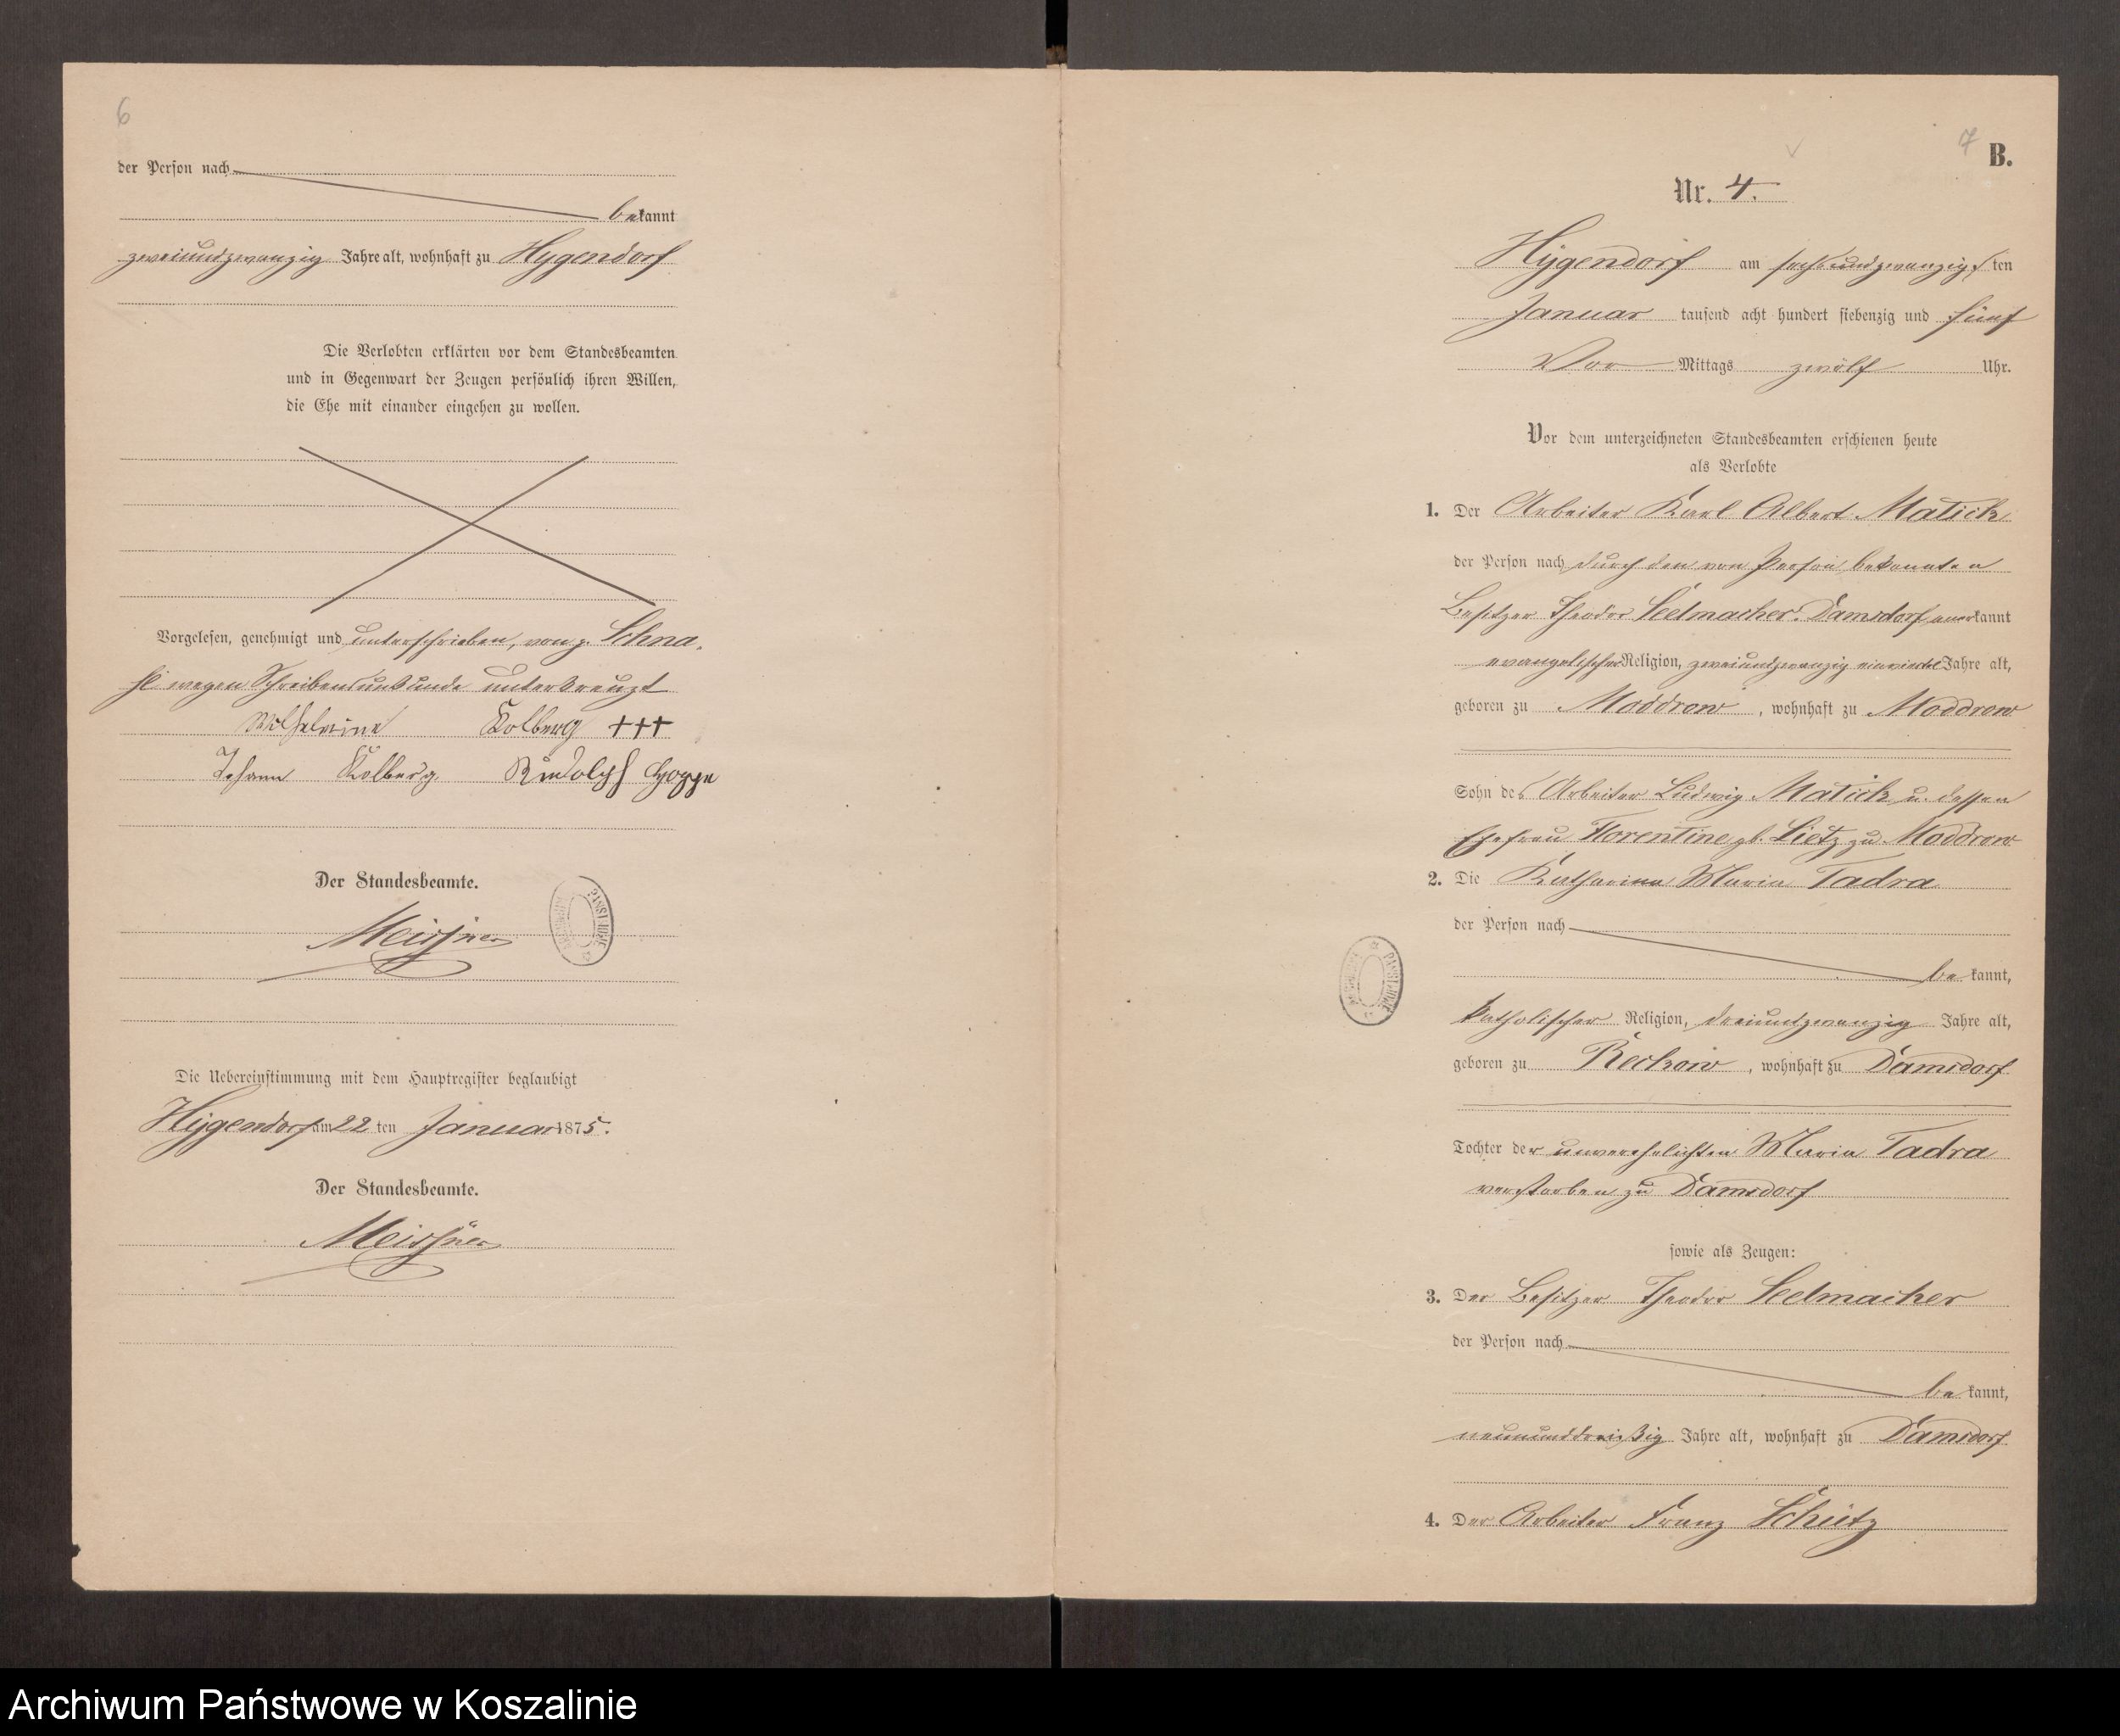 6
der Person nach
bekannt
zweiundzwanzig Jahre alt, wohnhaft zu Hygendorf
Die Verlobten erklärten vor dem Standesbeamten
und in Gegenwart der Zeugen persönlich ihren Willen,
die Ehe mit einander eingehen zu wollen.
Vorgelesen, genehmigt und unterschrieben, von p. Schna-
wegen Schreibensunkunde unterkreuzt
Wilhelmine Kolberg +++
Johann Kolberg. Rudolph Hoppe
Der Standesbeamte.
Meissner
Die Uebereinstimmung mit dem Hauptregister beglaubigt
Hygendorf am 22 ten Januar 1875.
Der Standesbeamte.
Meissner
7
B.
Nr. 4.
Hygendorf am sechsundzwanzigsten
Januar tausend acht hundert siebenzig und fünf
Vor Mittags zwölf Uhr.
Vor dem unterzeichneten Standesbeamten erschienen heute
als Verlobte
1. Der Arbeiter Karl Albert Matick
der Person nach durch den von Person bekannten
Besitzer Theodor Seelmacher-Damsdorf anerkannt
evangelischer Religion, zweiundzwanzig einviertel Jahre alt,
geboren zu Moddrow, wohnhaft zu Moddrow
Sohn des Arbeiter Ludwig Matick u. dessen
Ehefrau Florentine gb. Lietz zu Moddrow
2. Die Katharina Maria Tadra
der Person nach
bekannt,
katholischer Religion, dreiundzwanzig Jahre alt,
geboren zu Reckow, wohnhaft zu Damsdorf
Tochter der unverehelichten Maria Tadra
verstorben zu Damsdorf
sowie als Zeugen:
3. Der Besitzer Theodor Seelmacher
der Person nach
bekannt,
neununddreißig Jahre alt, wohnhaft zu Damsdorf
4. Der Arbeiter Franz Schütz
Archiwum Państwowe w Koszalinie